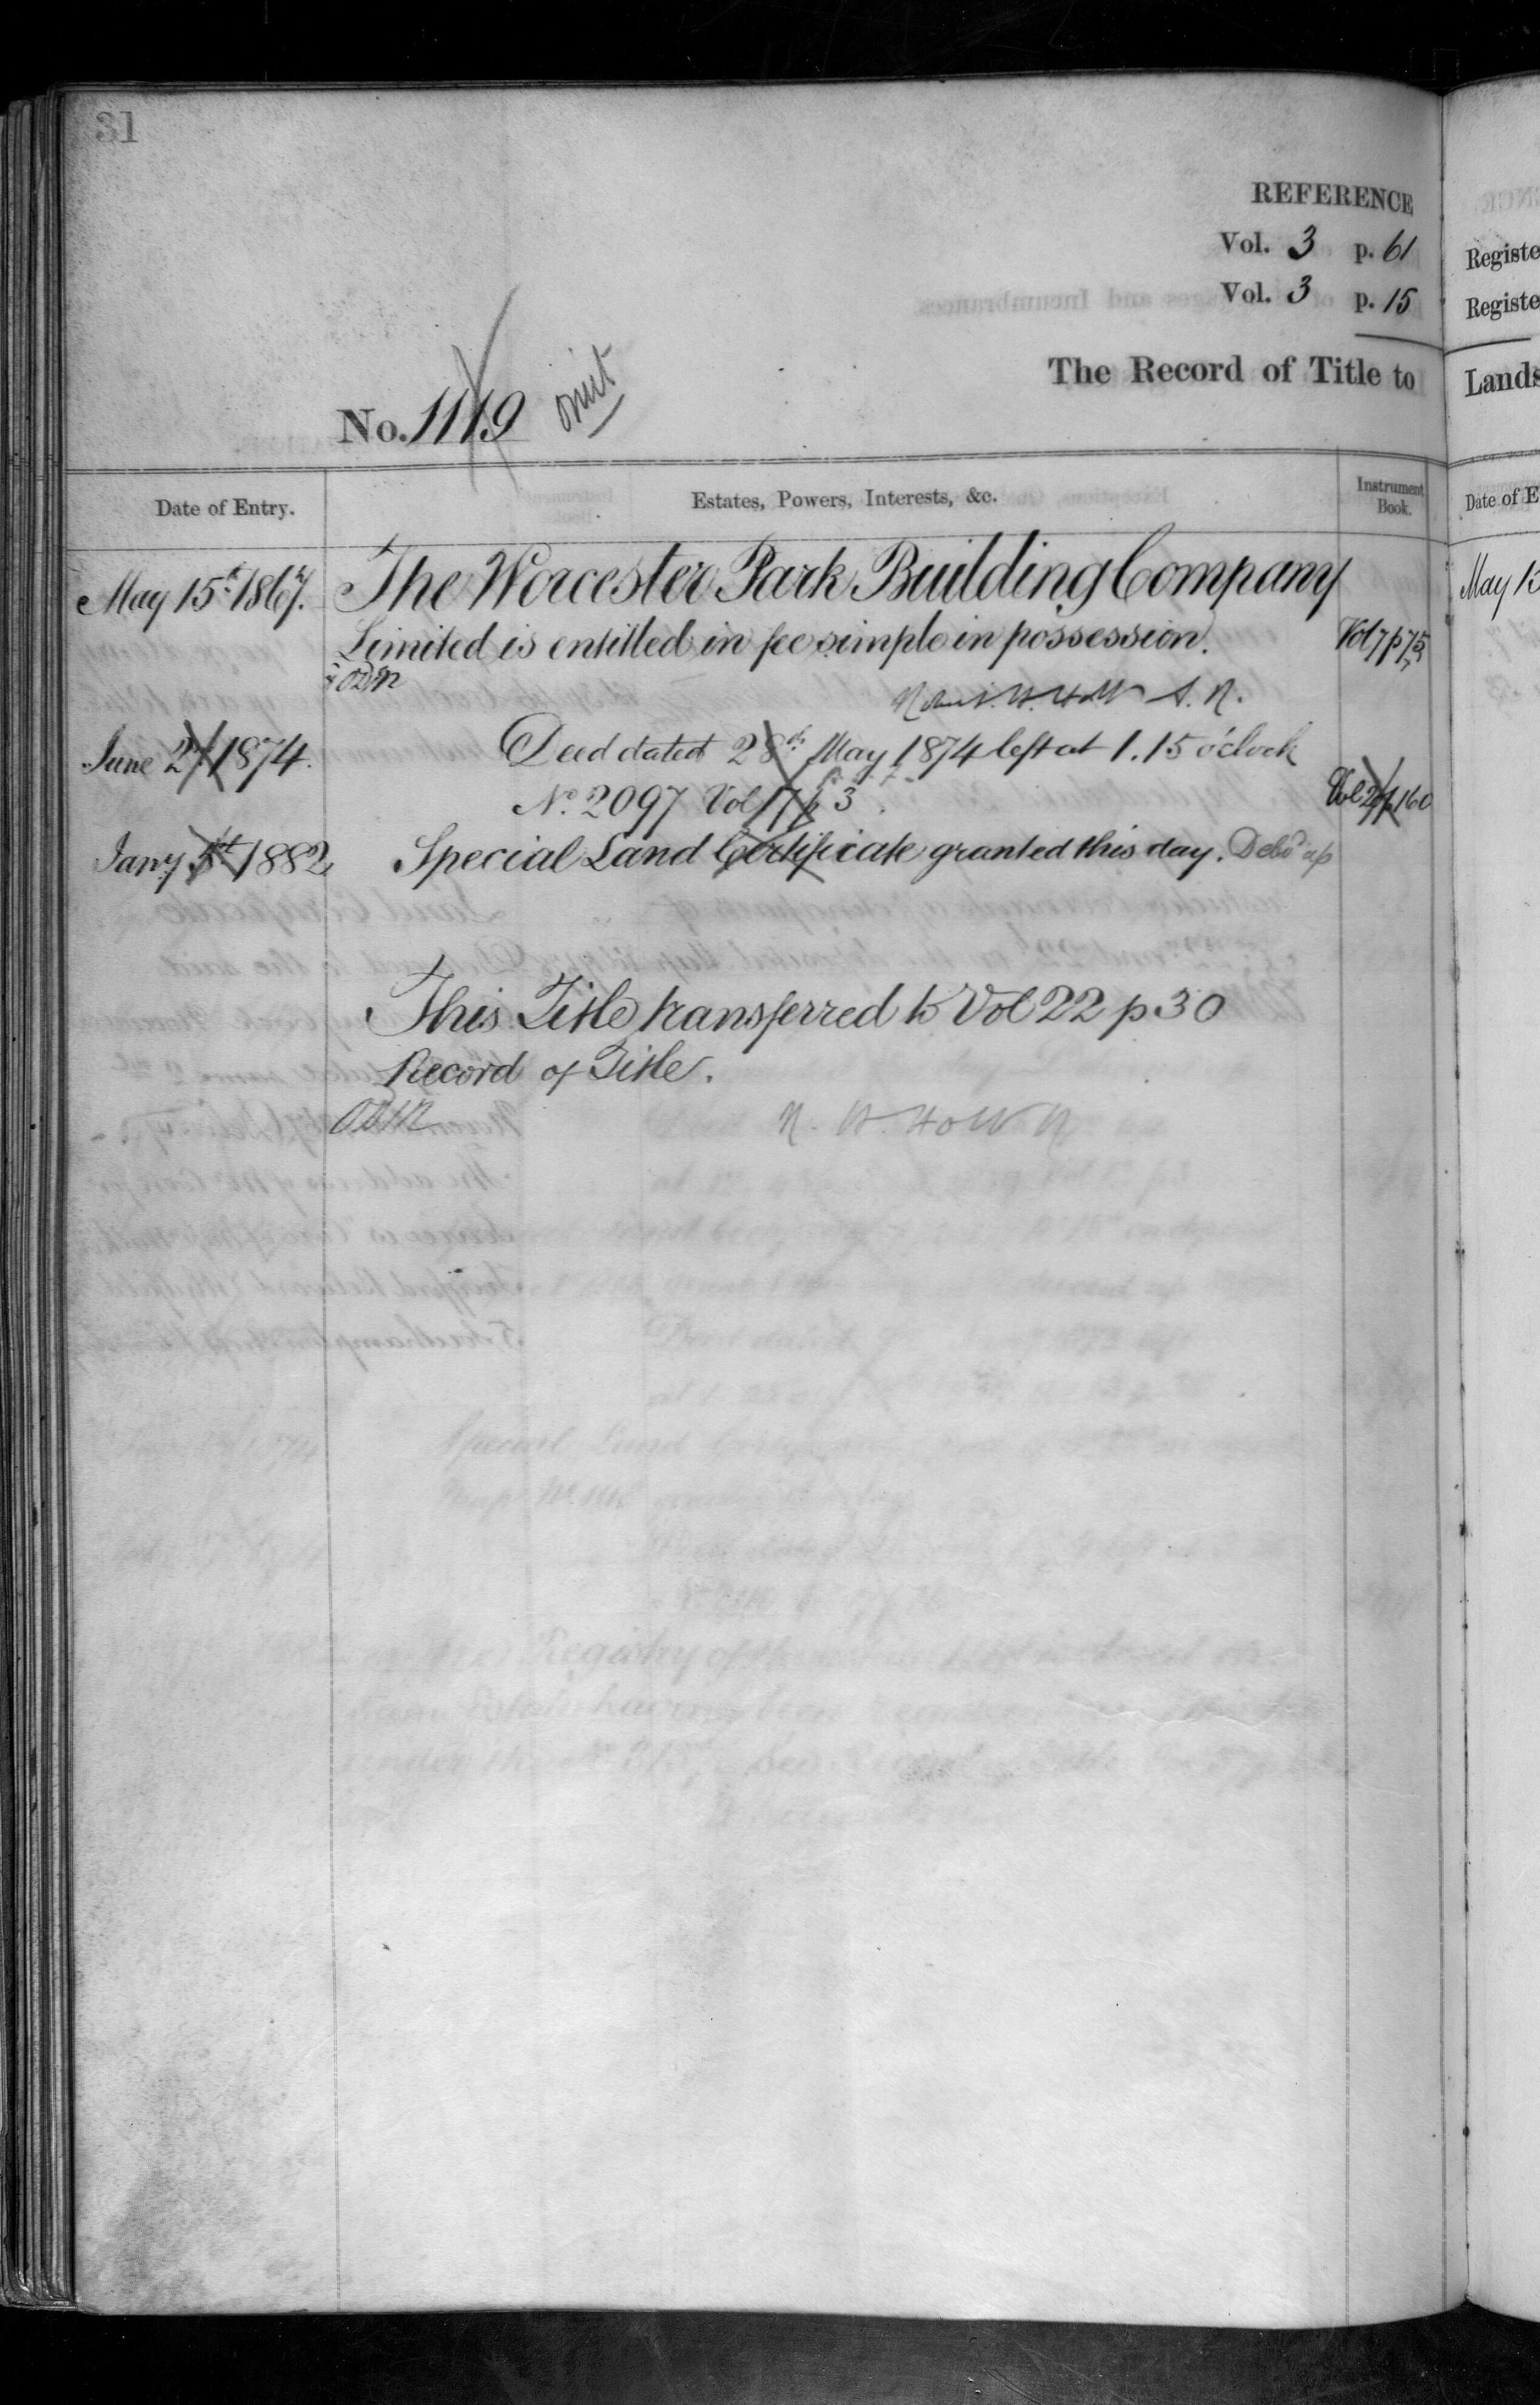 31
REFERENCE
Vol. 3 p. 61
Vol. 3 p. 15
The Record of Title to
No. 1119 omit
Date of Entry. Estates, Powers, Interests, &c. Instrument Book.
May 15th 1867. The Worcester Park Building Company
Limited is entitled in fee simple in possession. Vol 7 p 75
June 2 1874. Deed dated 28th May 1874 left at 1.15 o'clock
No. 2097 Vol 17 p 3 160
Jany 1st 1882 Special Land Certificate granted this day.
This Title transferred to Vol 22 p 30
Record of Title.
Registe
Registe
Lands
Date of E
May 15